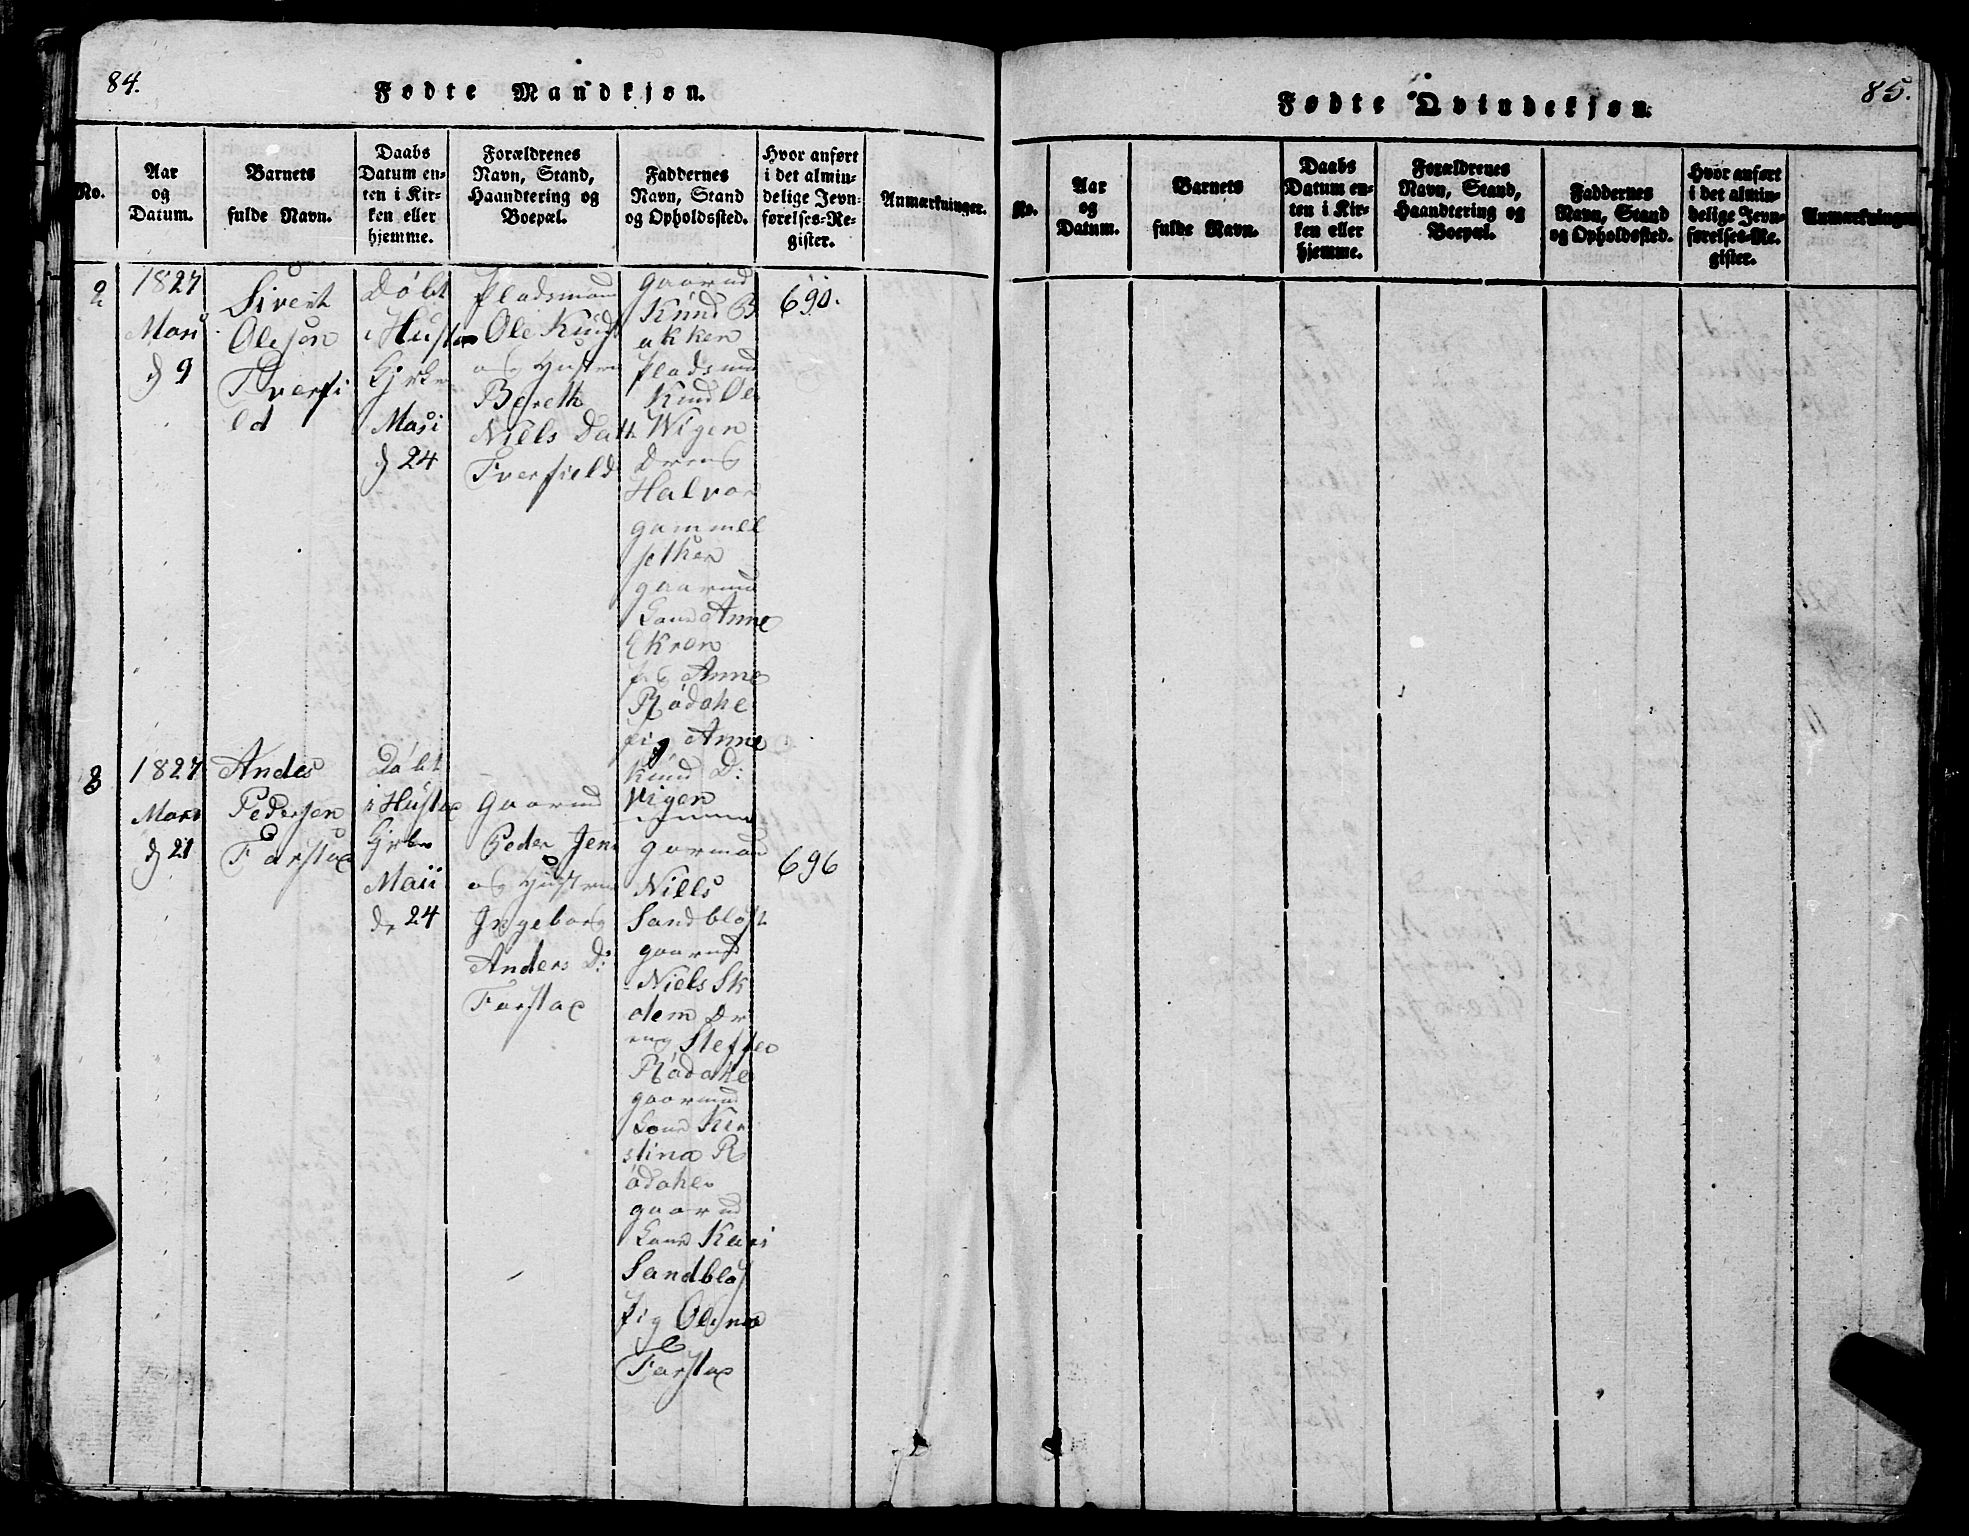 84.
Fødte Mandkjøn.
No.
Aar
og
Datum.
Barnets
fulde Navn.
Daabs
Datum en-
ten i Kir-
ken eller
hjemme.
Forældrenes
Navn, Stand,
Haandtering og
Boepæl.
Faddernes
Navn, Stand
og Opholdssted.
Hvor anført
i det almin-
delige Jevn-
førelses-Re-
gister.
Anmærkninger.
2
1827
Mars
d 9
Sivert
Olesen
Tverfi
eld
Døbt
i Hustad
Kirke
Maji
d 24
Pladsmand
Ole Knuds
og Hustru
Bereth
Niels Datt
Tverfield
gaarmd
Knud B
akken
Pladsmd
Knud Ol
Wigen
Dreng
Halvor
gammel
sether
gaarmd
Kone Anne
Ekren
pig Anne
Rødahl
pig Anne
Knud D:
Vigen
690.
3
1827
Mars
d 21
Andes
Pedersen
Farstad
Døbt
i Hustad
Kirke
Maii
d. 24
Gaarmd
Peder Jens
og Hustru
Ingeborg
Anders D:
Farstad
garman
Niels
Sandbløst
gaarmd
Niels Sk
alem Dr
eng Steffen
Rødahl
gaarmd
Kone Kir
stina R
ødahl
gaarmd
Kone Kari
Sandbløs
pig Olina
Farstad
696
85.
Fødte Qvindekjøn.
No.
Aar
og
Datum.
Barnets
fulde Navn.
Daabs
Datum en-
ten i Kir-
ken eller
hjemme.
Forældrenes
Navn, Stand,
Haandtering og
Boepæl.
Faddernes
Navn, Stand
og Opholdssted.
Hvor anført
i det almin-
delige Jevn-
førelses-Re-
gister.
Anmærkninger